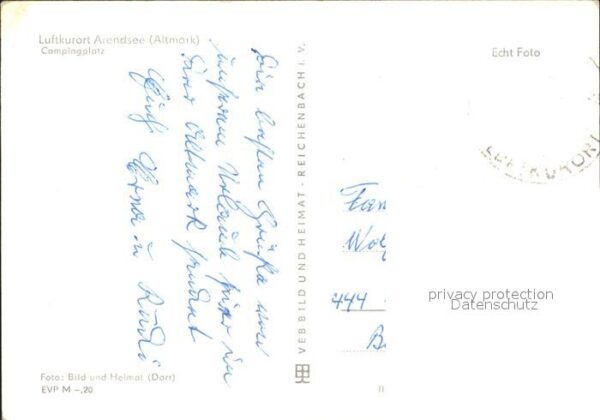 Luftkurort Arendsee (Altmark)
Campingplatz
Echt Foto
Die besten Grüße von
unserem Urlaub hier in
der Altmark sendet
Euch Erna u. Rudi
VEB BILD UND HEIMAT - REICHENBACH i. V.
LUFTKURORT
Fam
444
privacy protection
Datenschutz
Foto: Bild und Heimat (Dorr)
EVP M -,20